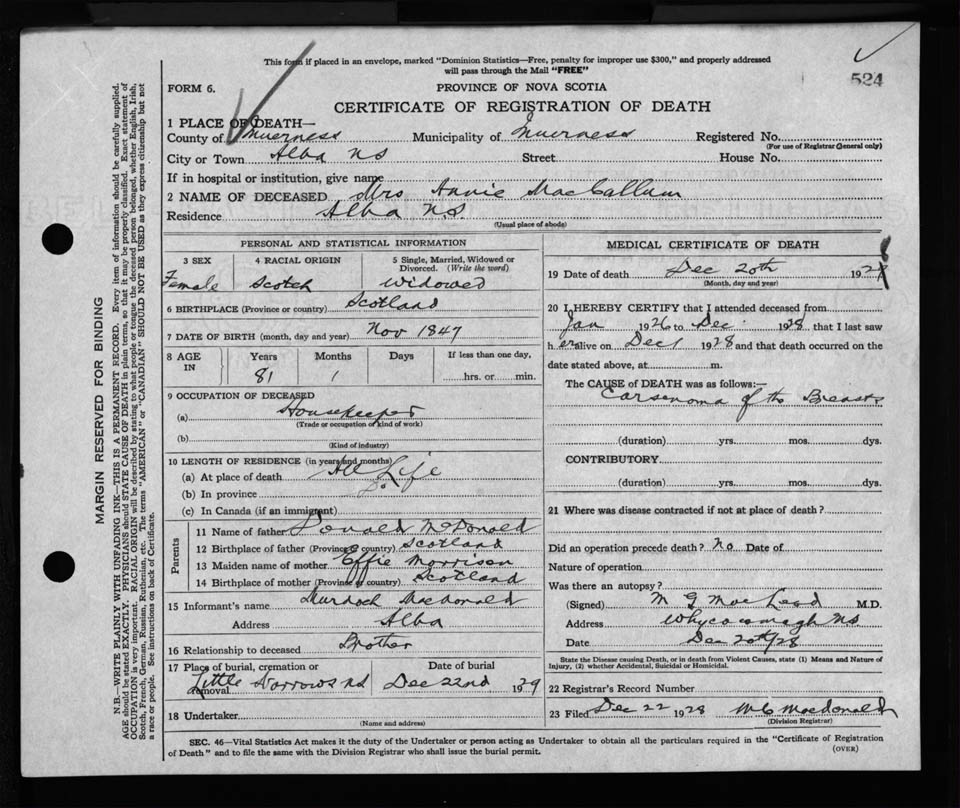 This form if placed in an envelope, marked "Dominion Statistics—Free, penalty for improper use $300," and properly addressed
will pass through the Mail "FREE"
524
FORM 6.
PROVINCE OF NOVA SCOTIA
CERTIFICATE OF REGISTRATION OF DEATH
1 PLACE OF DEATH—
County of Inverness Municipality of Inverness Registered No.
(For use of Registrar General only)
City or Town Alba NS Street House No.
If in hospital or institution, give name
2 NAME OF DECEASED Mrs Annie MacCallum
Residence Alba NS
(Usual place of abode)
PERSONAL AND STATISTICAL INFORMATION
3 SEX 4 RACIAL ORIGIN 5 Single, Married, Widowed or Divorced. (Write the word)
Female Scotch Widowed
6 BIRTHPLACE (Province or country) Scotland
7 DATE OF BIRTH (month, day and year) Nov 1847
8 AGE IN Years Months Days If less than one day,
81 1 hrs. or min.
9 OCCUPATION OF DECEASED
(a) Housekeeper
(Trade or occupation or kind of work)
(b)
(Kind of industry)
10 LENGTH OF RESIDENCE (in years and months)
(a) At place of death All Life
(b) In province Do
(c) In Canada (if an immigrant)
Parents
11 Name of father Donald McDonald
12 Birthplace of father (Province or country) Scotland
13 Maiden name of mother Effie Morrison
14 Birthplace of mother (Province or country) Scotland
15 Informant's name Murdoch McDonald
Address Alba
16 Relationship to deceased Brother
17 Place of burial, cremation or removal Date of burial
Little Narrows NS Dec 22nd 1929
18 Undertaker
(Name and address)
MEDICAL CERTIFICATE OF DEATH
19 Date of death Dec 20th 1928
(Month, day and year)
20 I HEREBY CERTIFY that I attended deceased from
Jan 1926 to Dec 1928 that I last saw
her alive on Dec 1 1928 and that death occurred on the
date stated above, at m.
The CAUSE of DEATH was as follows:—
Carsenoma of the Breasts
(duration) yrs. mos. dys.
CONTRIBUTORY
(duration) yrs. mos. dys.
21 Where was disease contracted if not at place of death?
Did an operation precede death? No Date of
Nature of operation
Was there an autopsy?
(Signed) M G MacLeod M.D.
Address Whycocomagh NS
Date Dec 20th/28
State the Disease causing Death, or in death from Violent Causes, state (1) Means and Nature of
Injury, (2) whether Accidental, Suicidal or Homicidal.
22 Registrar's Record Number
23 Filed Dec 22 1928 Macdonald
(Division Registrar)
SEC. 46—Vital Statistics Act makes it the duty of the Undertaker or person acting as Undertaker to obtain all the particulars required in the "Certificate of Registration
of Death" and to file the same with the Division Registrar who shall issue the burial permit.
(OVER)
MARGIN RESERVED FOR BINDING
N.B.—WRITE PLAINLY WITH UNFADING INK—THIS IS A PERMANENT RECORD. Every item of information should be carefully supplied.
AGE should be stated EXACTLY. PHYSICIANS should STATE CAUSE OF DEATH in plain terms, so that it may be properly classified. Exact statement of
OCCUPATION is very important. RACIAL ORIGIN will be described by stating to what people or tongue the deceased person belonged, whether English, Irish,
Scotch, French, German, Russian, Ruthenian, etc. The terms "AMERICAN" or "CANADIAN" SHOULD NOT BE USED as they express citizenship but not
a race or people. See instructions on back of Certificate.